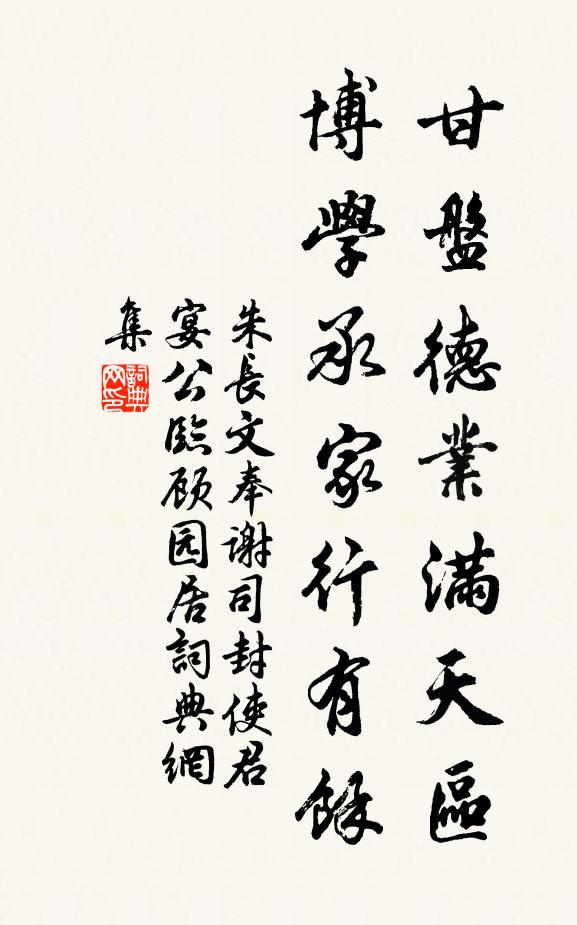 甘盤德業滿天區
博學承家行有餘
朱長文奉謝司封使君
宴公臨顾园居詞典網
集
詞典網印